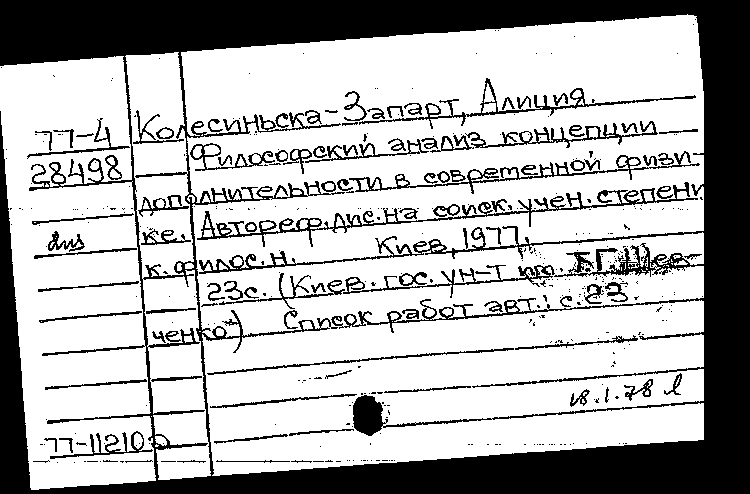 77-4 Колесиньска-Запарт, Алиция.
28498 Философский анализ концепции
дополнительности в современной физи-
ке. Автореф. дис. на соиск. учен. степени
к. филос. н. Киев, 1977.
23с. (Киев. гос. ун-т им. Т.Г. Шев-
ченко). Список работ авт.: с. 23.
18.1.78
77-11210